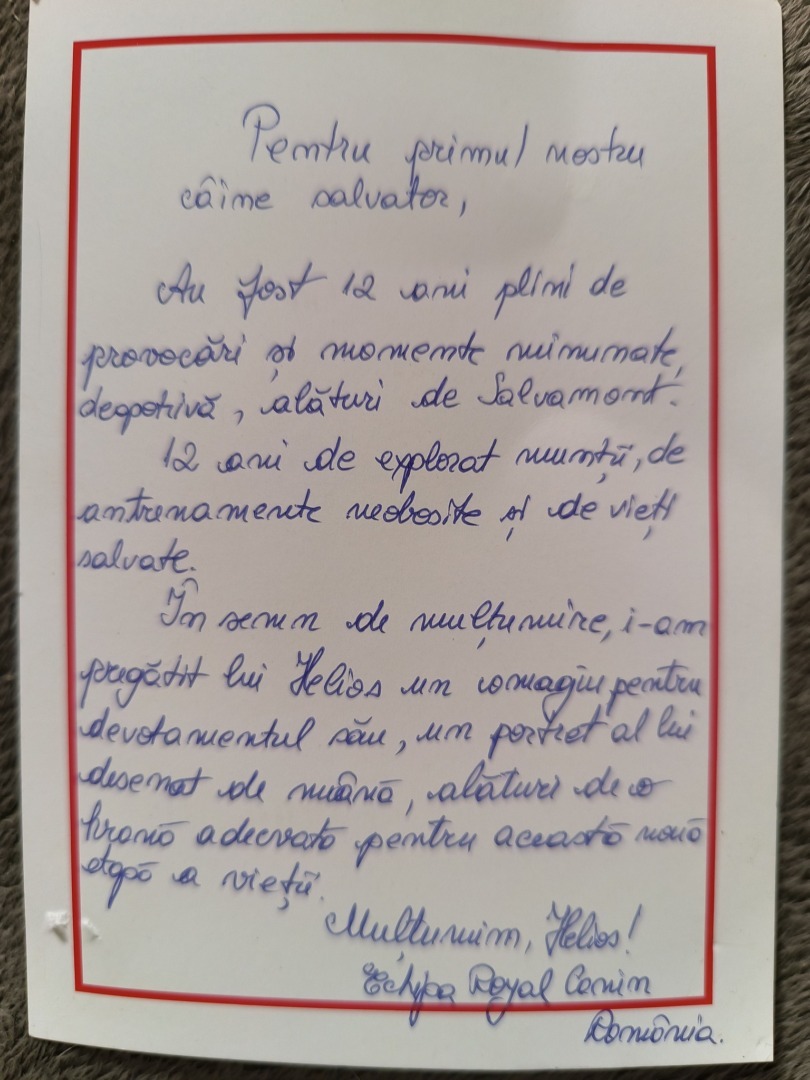 Pentru primul nostru
câine salvator,
Au fost 12 ani plini de
provocări și momente minunate,
deopotrivă, alături de Salvamont.
12 ani de explorat munții, de
antrenamente neobosite și de vieți
salvate.
În semn de mulțumire, i-am
pregătit lui Helios un omagiu pentru
devotamentul său, un portret al lui
desenat de mână, alături de o
hrană adecvată pentru această nouă
etapă a vieții.
Mulțumim, Helios!
Echipa Royal Canin
România.